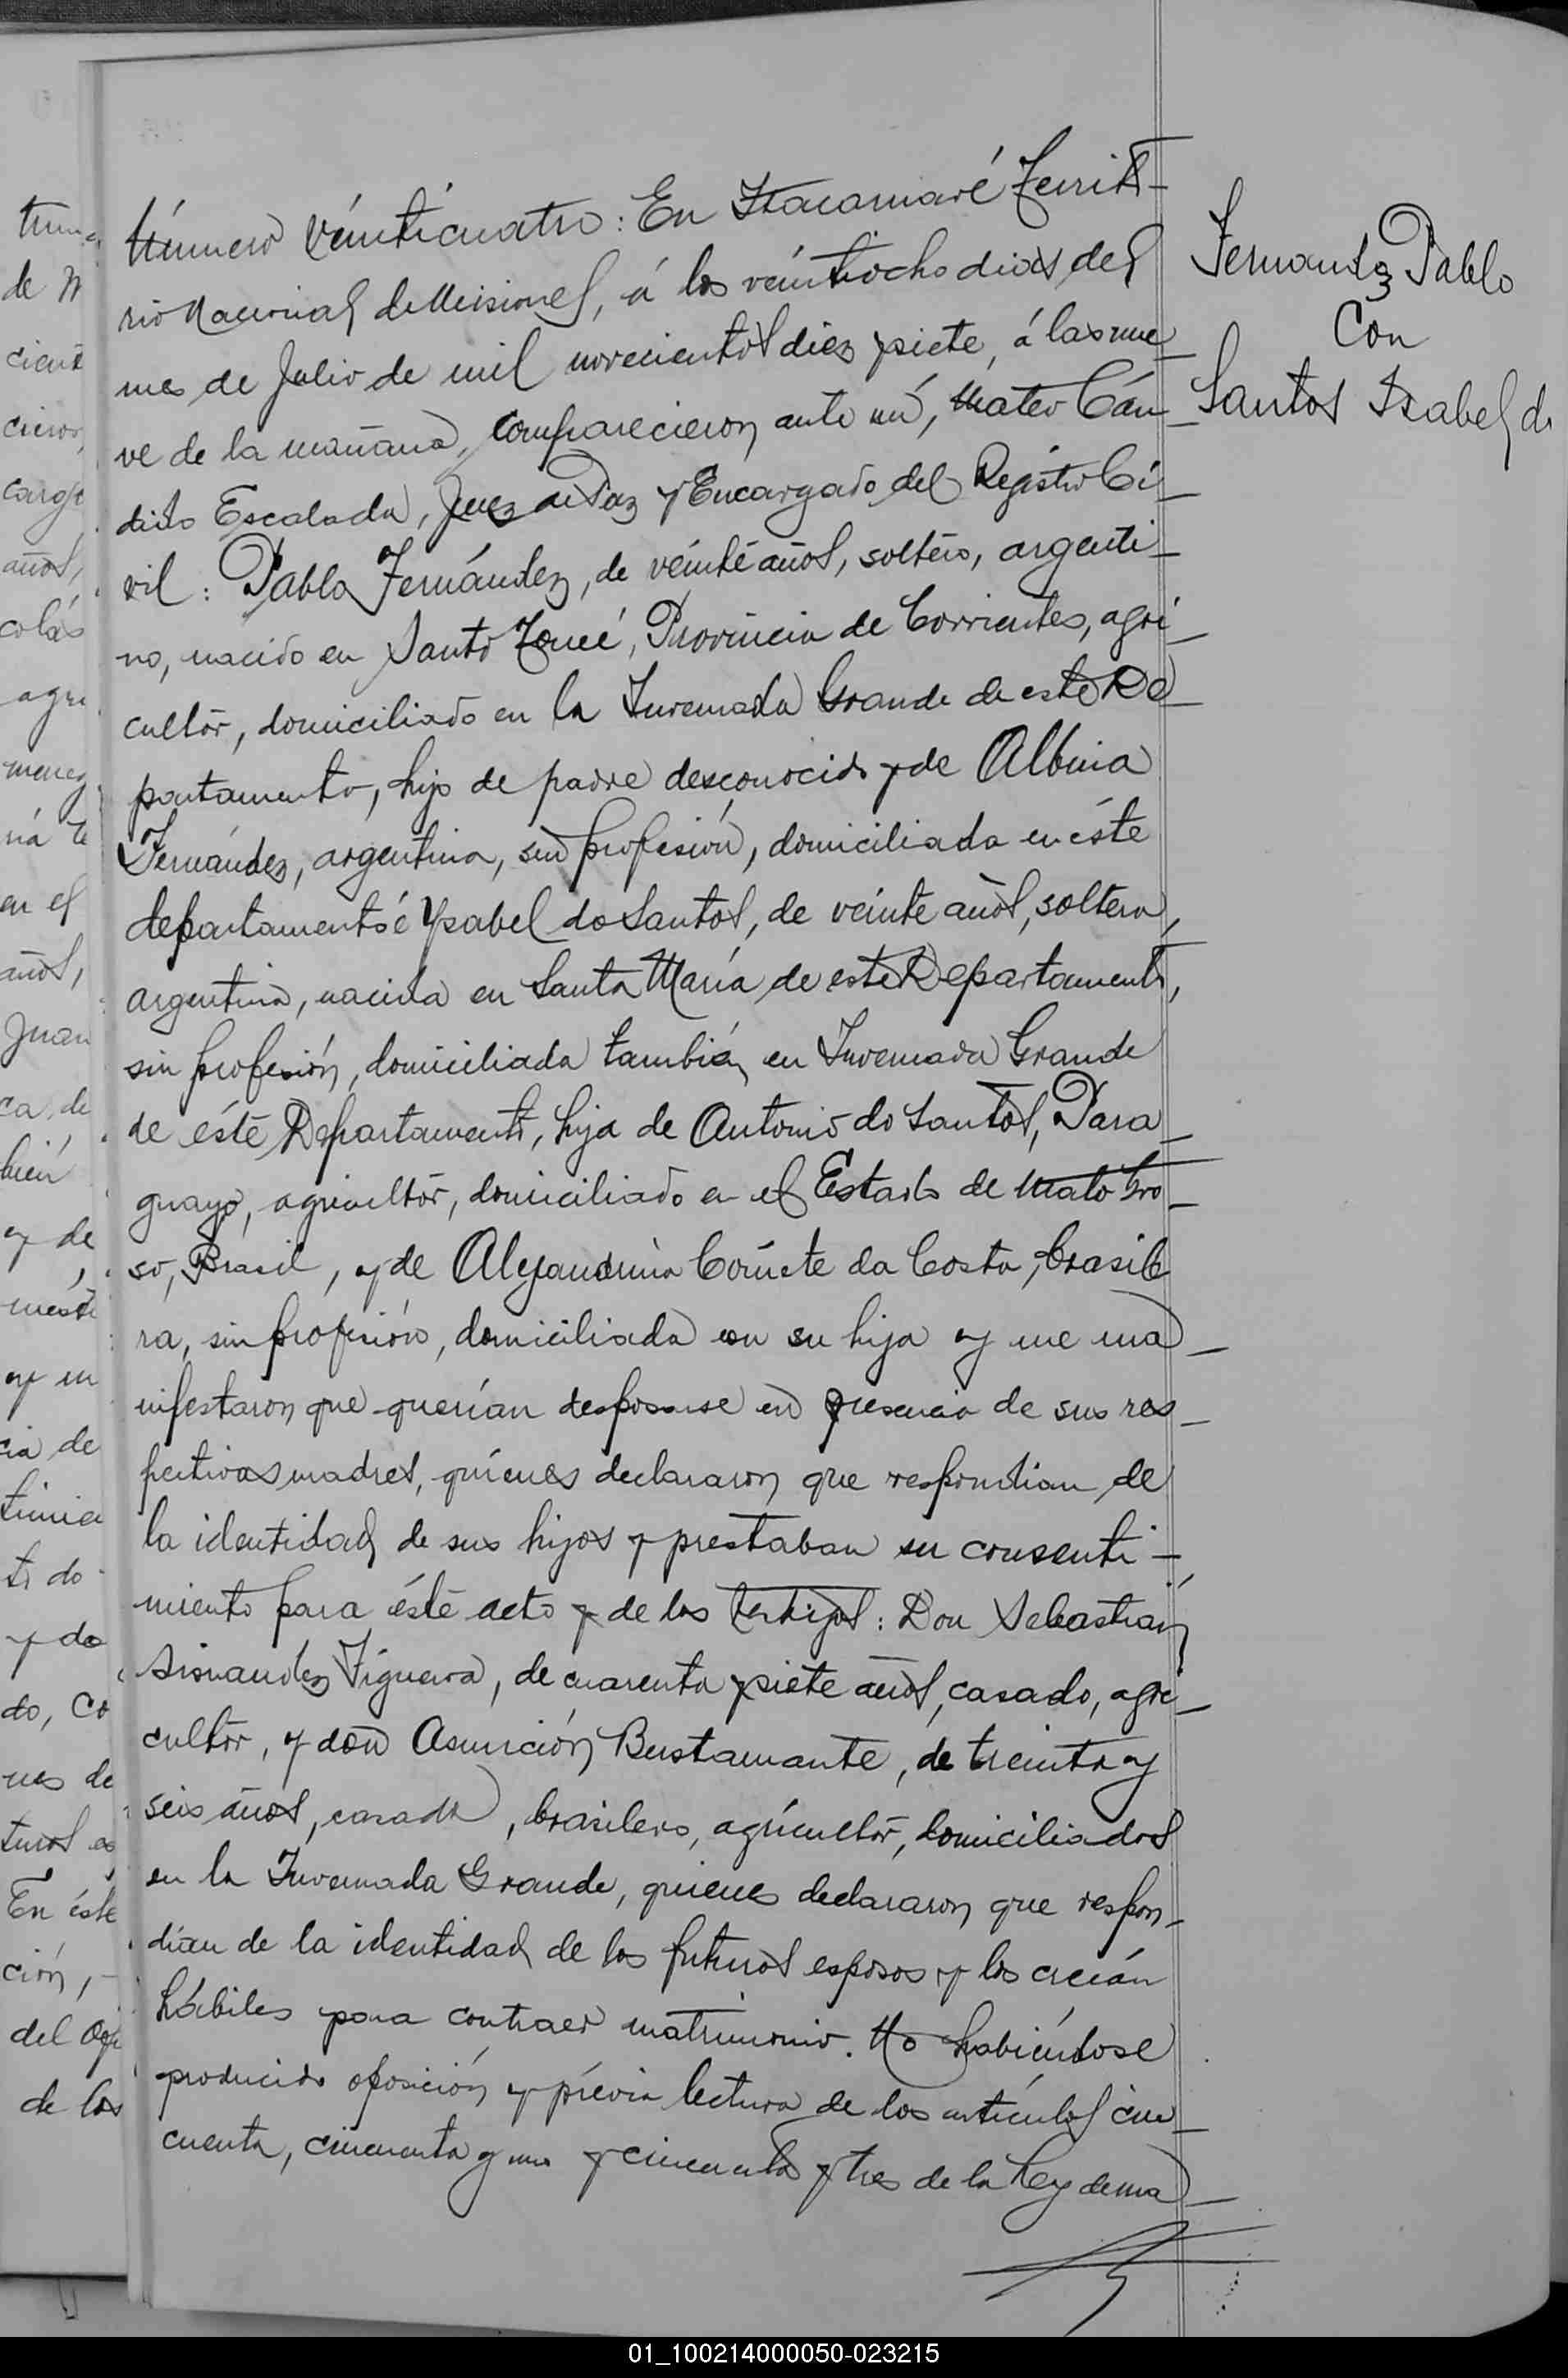 Número veinticuatro: En Itacaruaré Territo-
rio Nacional de Misiones, á los veintiocho dias del
mes de Julio de mil novecientos diez y siete, á las nue-
ve de la mañana, comparecieron ante mí, Mateo Cán-
dido Escalada, Juez de Paz y Encargado del Registro Ci-
vil: Pablo Fernández, de veinte años, soltero, argenti-
no, nacido en Santo Tomé, Provincia de Corrientes, agri-
cultor, domiciliado en la Invernada Grande de este De-
partamento, hijo de padre desconocido y de Albina
Fernández, argentina, sin profesión, domiciliada en éste
departamento é Ysabel do Santos, de veinte años, soltera,
argentina, nacida en Santa María de este Departamento,
sin profesión, domiciliada también en Invernada Grande
de éste Departamento, hija de Antonio do Santos, Para-
guayo, agricultor, domiciliado en el Estado de Mato Gro-
so, Brasil, y de Alejandrina da Costa, brasile
ra, sin profesión, domiciliada con su hija y me ma-
nifestaron que querían desposarse en presencia de sus res-
pectivas madres, quíenes declararon que respondian de
la identidad de sus hijos y prestaban su consenti-
miento para éste acto y de los testigos: Don Sebastián
Figuera, de cuarenta y siete años, casado, agri-
cultor, y don Asunción Bustamante, de treinta y
seis años, casado, brasilero, agricultor, domiciliados
en la Invernada Grande, quienes declararon que respon-
dían de la identidad de los futuros esposos y los creían
hábiles para contraer matrimonio. No habiéndose
producido oposición y prévia lectura de los artículos cin-
cuenta, cincuenta y uno y cincuenta y tres de la Ley de ma-
Fernandez Pablo
Con
Santos Isabel do
01_100214000050-023215